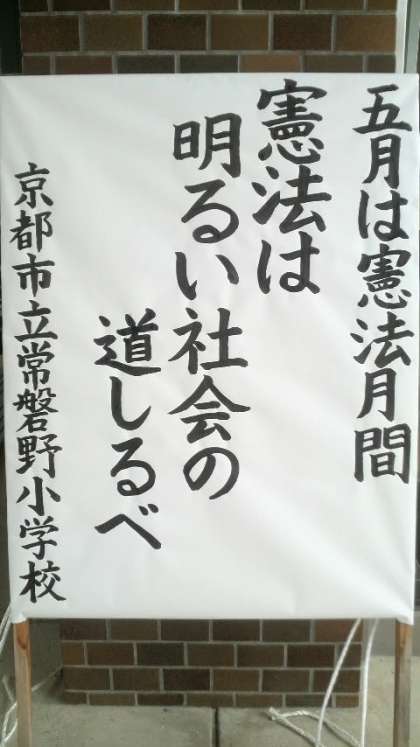 五月は憲法月間
憲法は
明るい社会の
道しるべ
京都市立常磐野小学校